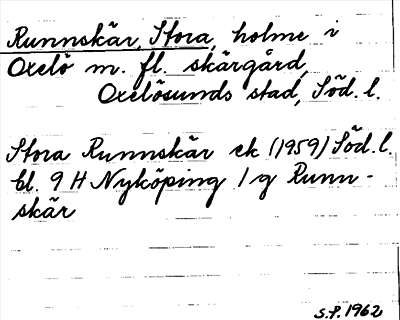 Runnskär, Stora, holme i
Oxelö m. fl. skärgård,
Oxelösunds stad, Söd. l.
Stora Runnskär ek (1959) Söd. l.
bl. 9 H Nyköping 1 g Runn-
skär
S.P. 1962